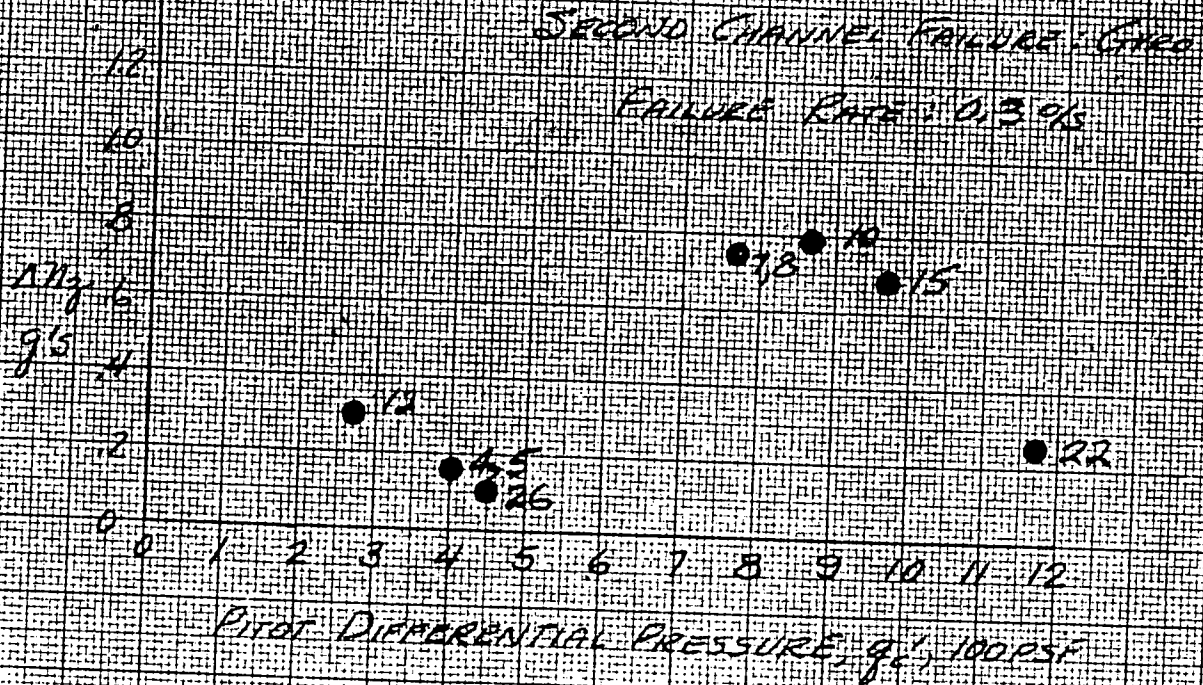 SECOND CHANNEL FAILURE: GYRO
FAILURE RATE: 0.3°/s
1.2
1.0
.8
.6
.4
.2
0
Δnz,
g's
12
4,5
26
7,8
10
15
22
0 1 2 3 4 5 6 7 8 9 10 11 12
PITOT DIFFERENTIAL PRESSURE, qc', 100 PSF